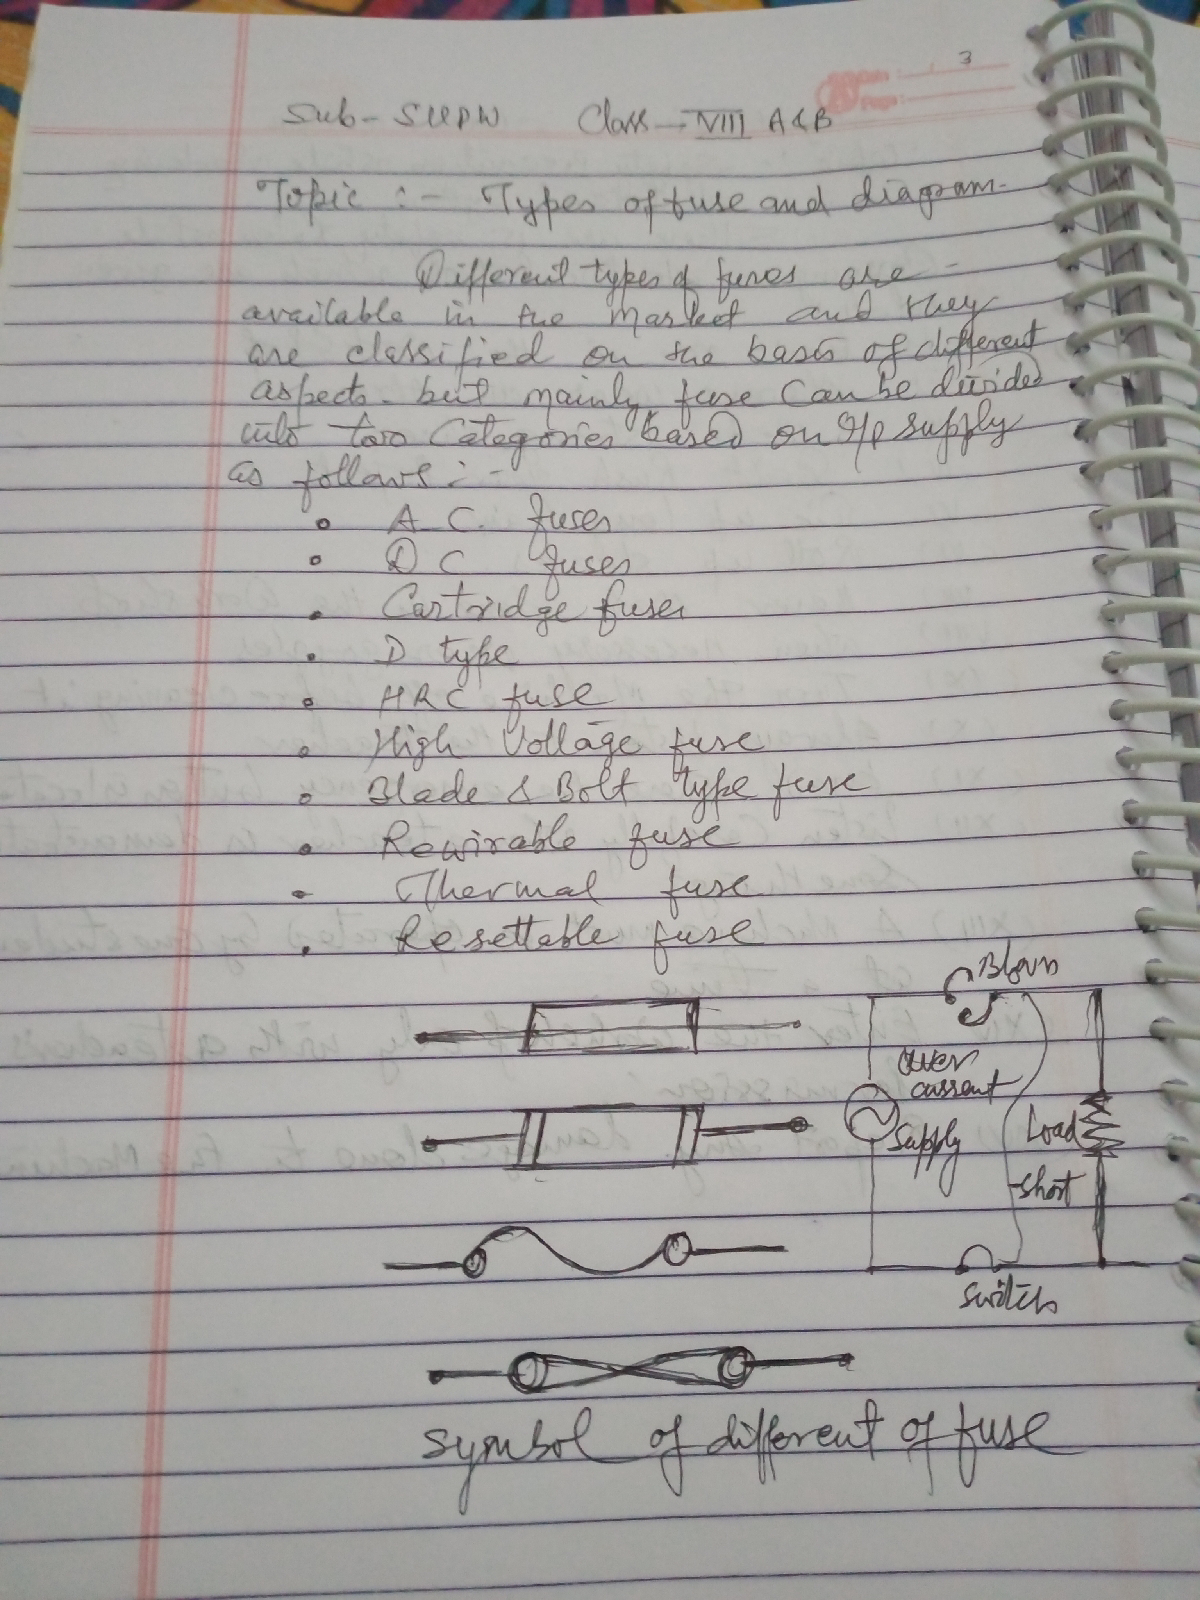 3
Sub - SUPW Class - VIII A & B
Topic :- Types of fuse and diagram.
Different types of fuses are
available in the market and they
are classified on the basis of different
aspects. but mainly fuse can be divided
into two Categories based on I/p supply
as follows :-
• A C. fuses
• D C fuses
• Cartridge fuses
• D type
• HRC fuse
• High Voltage fuse
• Blade & Bolt type fuse
• Rewirable fuse
• Thermal fuse
• Resettable fuse
Blown
Over
current
Supply
Load
short
Switch
Symbol of different of fuse